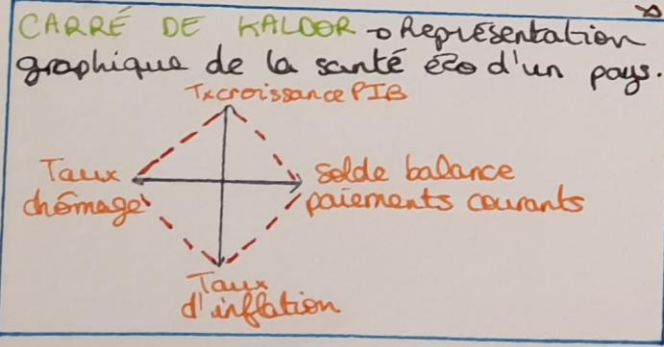 CARRÉ DE KALDOR → Représentation
graphique de la santé éco d'un pays.
Tx croissance PIB
Taux
chômage
Solde balance
paiements courants
Taux
d'inflation